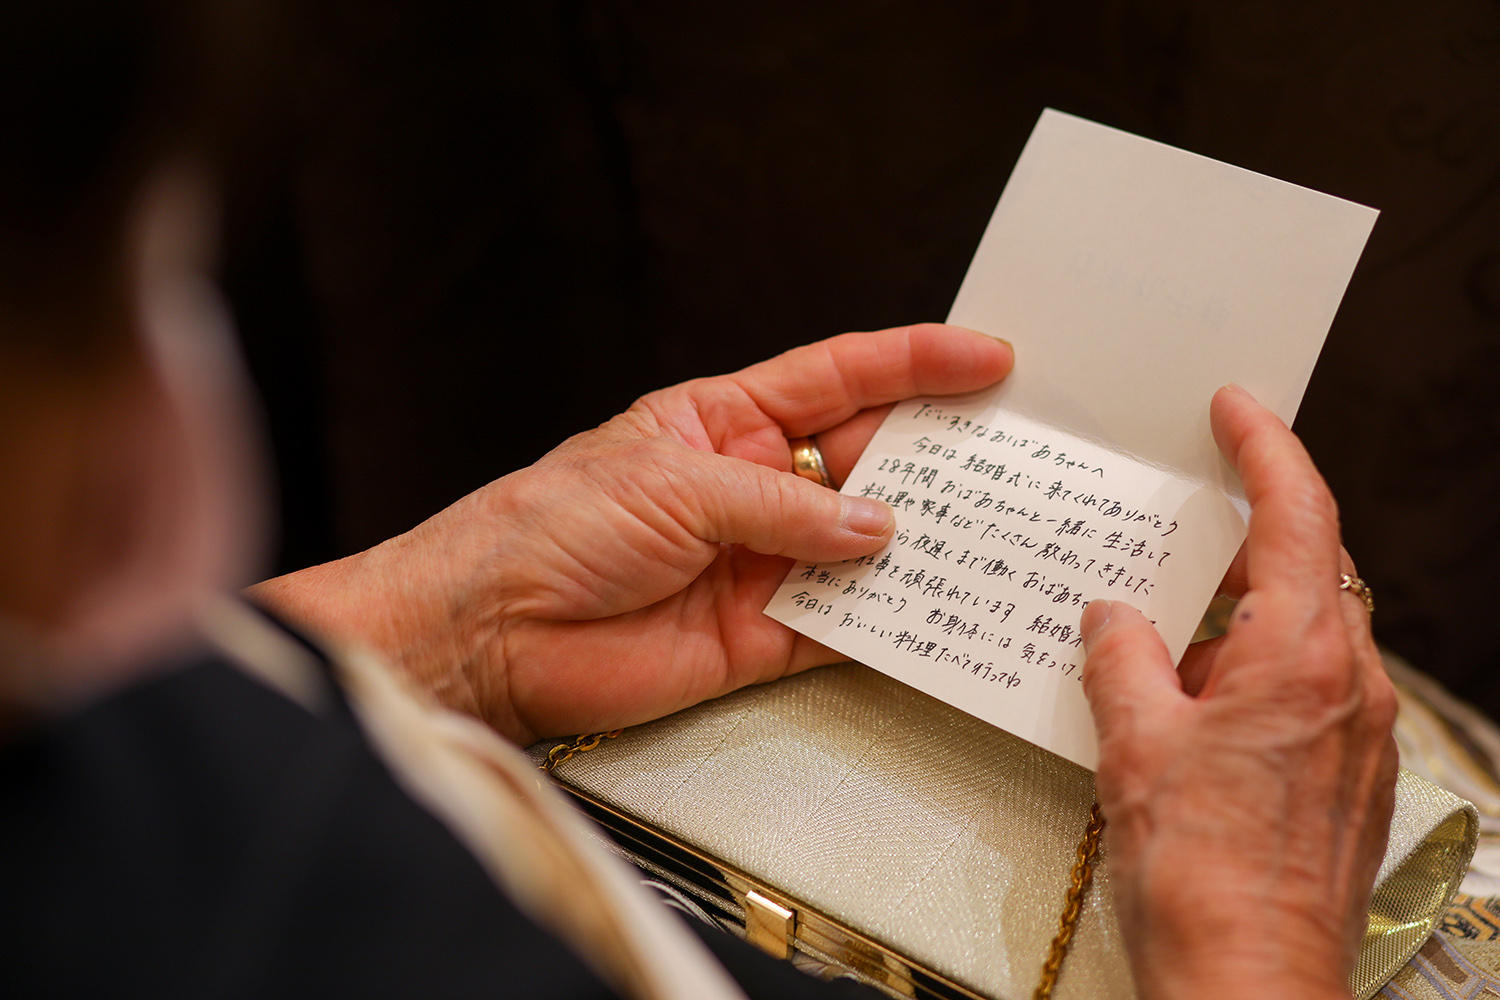 だいすきなおばあちゃんへ
今日は 結婚式に 来てくれてありがとう
28年間 おばあちゃんと一緒に 生活して
料理や 家事など たくさん 教わってきました
から 夜遅くまで働く おばあち
仕事を 頑張れています 結婚
本当に ありがとう お身体には 気をつけ
今日は おいしい料理たべて行ってね